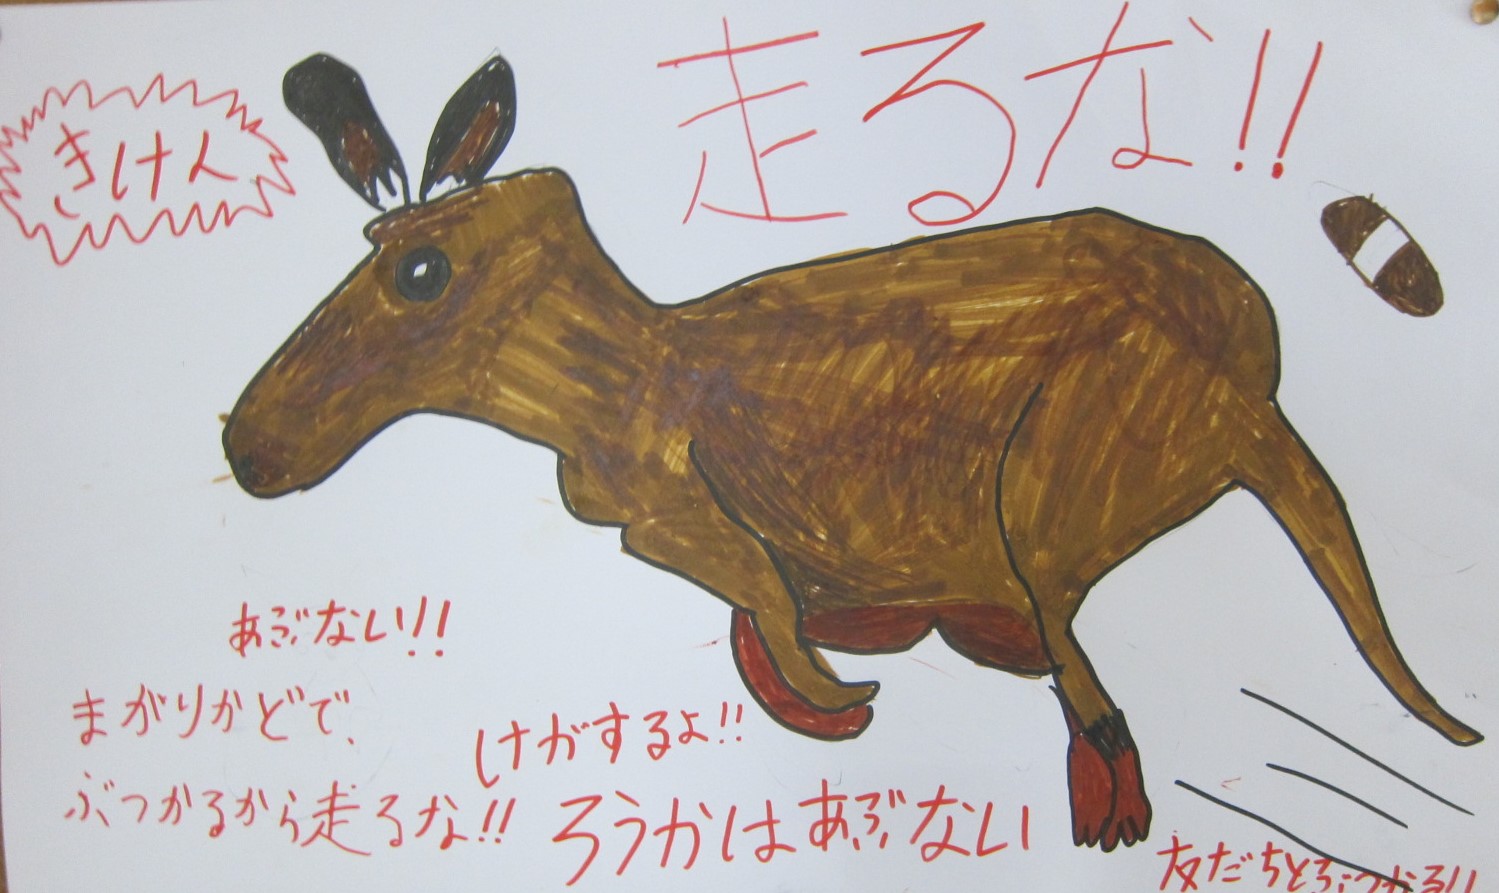 走るな!!
きけん
あぶない!!
まがりかどで、
ぶつかるから走るな!!
けがするよ!!
ろうかはあぶない
友だちとぶつかる!!